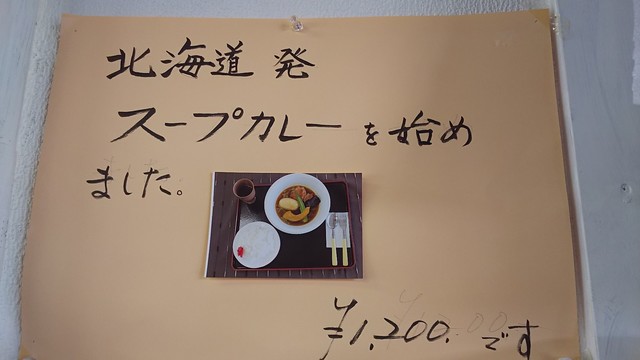 北海道 発
スープカレーを始め
ました。
¥1,200.です